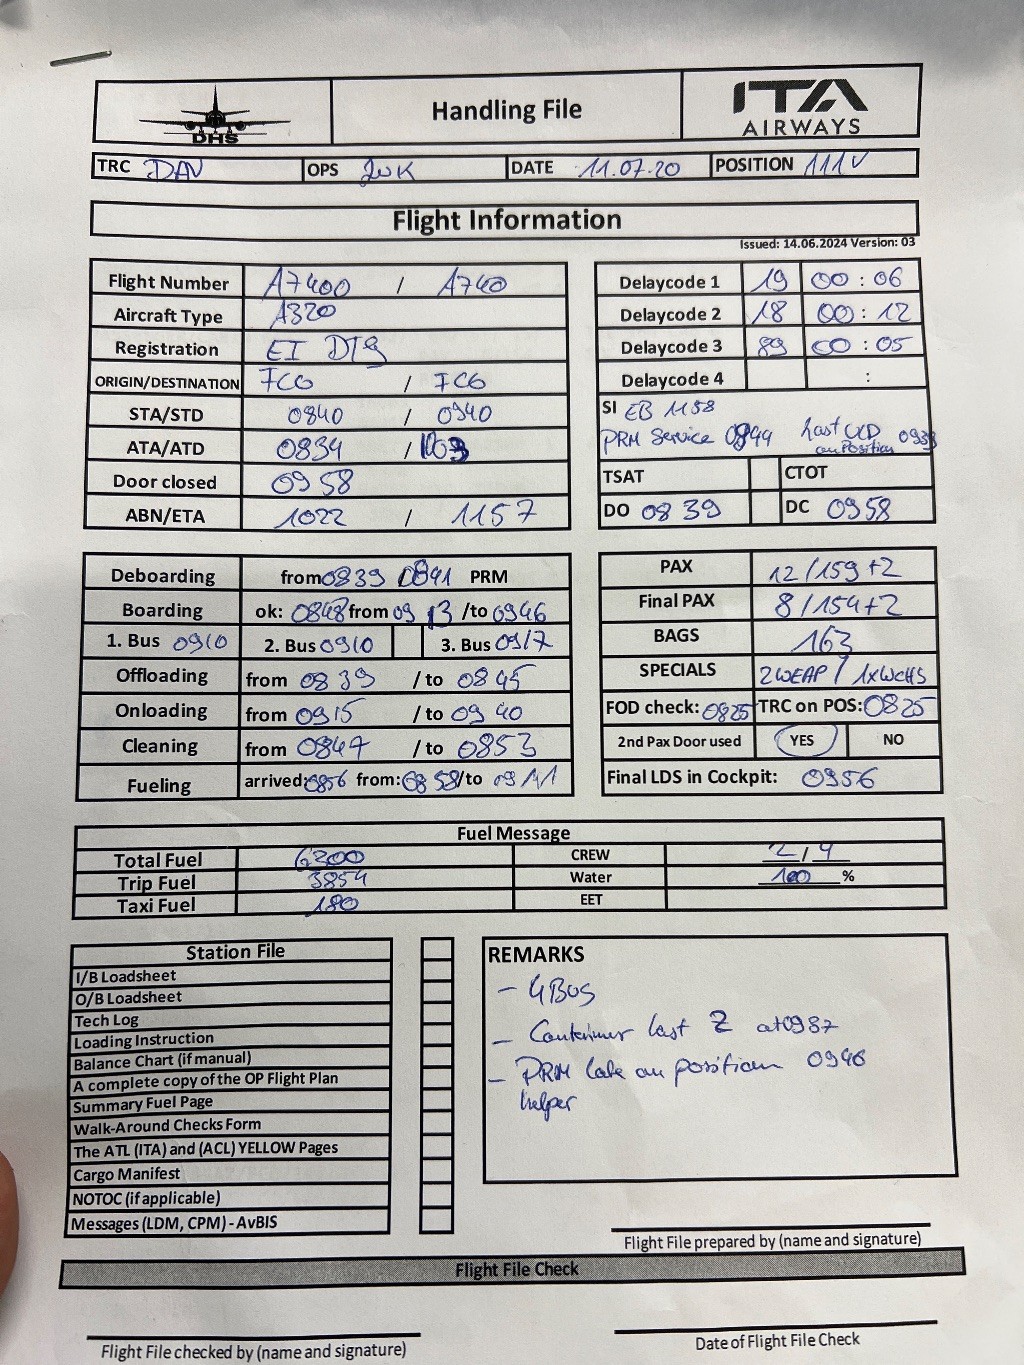 DHS
Handling File
ITA
AIRWAYS
TRC DAV OPS DATE 11.07.20 POSITION 111V
Flight Information
Issued: 14.06.2024 Version: 03
Flight Number AZ400 / AZ40
Aircraft Type A320
Registration EI DTG
ORIGIN/DESTINATION FCO / FCO
STA/STD 0840 / 0940
ATA/ATD 0834 / 1003
Door closed 0958
ABN/ETA 1022 / 1157
Delaycode 1 19 00 : 06
Delaycode 2 18 00 : 12
Delaycode 3 89 00 : 05
Delaycode 4 :
SI EB 1158
PRM Service 0844 Last ULD
on Position
TSAT CTOT
DO 0839 DC 0958
Deboarding from 0839 0841 PRM
Boarding ok: 0848 from 0913 /to 0946
1. Bus 0910 2. Bus 0910 3. Bus 0917
Offloading from 0839 /to 0845
Onloading from 0915 /to 0940
Cleaning from 0847 /to 0853
Fueling arrived: 0856 from: 0858 /to 0911
PAX 12/159+2
Final PAX 8/154+2
BAGS 163
SPECIALS 2WEAP / 1xWCHS
FOD check: 0825 TRC on POS: 0825
2nd Pax Door used YES NO
Final LDS in Cockpit: 0956
Fuel Message
Total Fuel 6200 CREW 2/4
Trip Fuel 3854 Water 100 %
Taxi Fuel 180 EET
Station File
I/B Loadsheet
O/B Loadsheet
Tech Log
Loading Instruction
Balance Chart (if manual)
A complete copy of the OP Flight Plan
Summary Fuel Page
Walk-Around Checks Form
The ATL (ITA) and (ACL) YELLOW Pages
Cargo Manifest
NOTOC (if applicable)
Messages (LDM, CPM) - AvBIS
REMARKS
- 4 BUS
- Container last 2 at
- PRM late on position 0946
helper
Flight File prepared by (name and signature)
Flight File Check
Flight File checked by (name and signature)
Date of Flight File Check